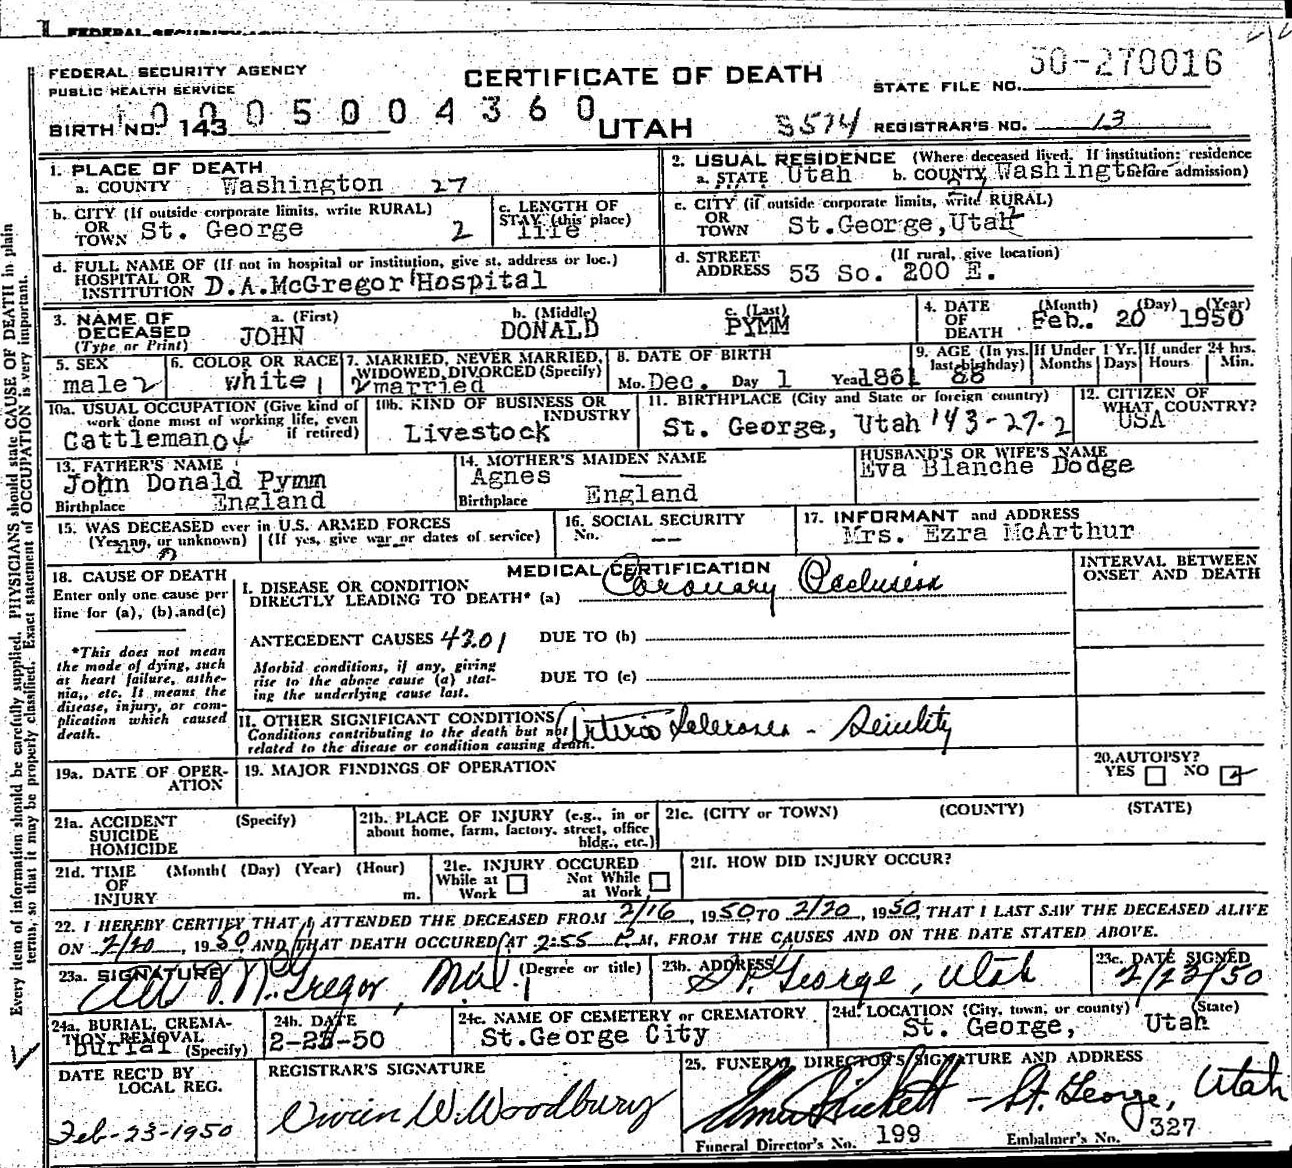 FEDERAL SECURITY AGENCY
PUBLIC HEALTH SERVICE
CERTIFICATE OF DEATH
STATE FILE NO. 50-270016
0005004360
BIRTH NO. 143
UTAH
3574 REGISTRAR'S NO. 13
1. PLACE OF DEATH
a. COUNTY Washington 27
2. USUAL RESIDENCE (Where deceased lived. If institution: residence before admission)
a. STATE Utah b. COUNTY Washingt
b. CITY (If outside corporate limits, write RURAL)
OR TOWN St. George 2
c. LENGTH OF STAY (this place)
life
c. CITY (if outside corporate limits, write RURAL)
OR TOWN St.George,Utah
d. FULL NAME OF (If not in hospital or institution, give st. address or loc.)
HOSPITAL OR INSTITUTION D.A.McGregor Hospital
d. STREET ADDRESS (If rural, give location)
53 So. 200 E.
3. NAME OF DECEASED (Type or Print)
a. (First) b. (Middle) c. (Last)
JOHN DONALD PYMM
4. DATE OF DEATH (Month) (Day) (Year)
Feb. 20 1950
5. SEX
male 2
6. COLOR OR RACE
white 1
7. MARRIED, NEVER MARRIED, WIDOWED, DIVORCED (Specify)
2 married
8. DATE OF BIRTH
Mo. Dec. Day 1 Year 1861
9. AGE (In yrs. last birthday)
88
If Under 1 Yr. Months Days
If under 24 hrs. Hours Min.
10a. USUAL OCCUPATION (Give kind of work done most of working life, even if retired)
Cattleman 04
10b. KIND OF BUSINESS OR INDUSTRY
Livestock
11. BIRTHPLACE (City and State or foreign country)
St. George, Utah 143-27-2
12. CITIZEN OF WHAT COUNTRY?
USA
13. FATHER'S NAME
John Donald Pymm
Birthplace England
14. MOTHER'S MAIDEN NAME
Agnes
Birthplace England
HUSBAND'S OR WIFE'S NAME
Eva Blanche Dodge
15. WAS DECEASED ever in U.S. ARMED FORCES
(Yes, no, or unknown) (If yes, give war or dates of service)
no 0
16. SOCIAL SECURITY
No. --
17. INFORMANT and ADDRESS
Mrs. Ezra McArthur
18. CAUSE OF DEATH
Enter only one cause per line for (a), (b) and (c)
*This does not mean the mode of dying, such at heart failure, asthenia, etc. It means the disease, injury, or complication which caused death.
MEDICAL CERTIFICATION
I. DISEASE OR CONDITION DIRECTLY LEADING TO DEATH* (a) Coronary Occlusion
INTERVAL BETWEEN ONSET AND DEATH
ANTECEDENT CAUSES 4301 DUE TO (b)
Morbid conditions, if any, giving rise to the above cause (a) stating the underlying cause last.
DUE TO (c)
II. OTHER SIGNIFICANT CONDITIONS
Conditions contributing to the death but not related to the disease or condition causing death.
Arterio Sclerosis - Senility
19a. DATE OF OPERATION
19. MAJOR FINDINGS OF OPERATION
20. AUTOPSY?
YES NO
21a. ACCIDENT (Specify)
SUICIDE
HOMICIDE
21b. PLACE OF INJURY (e.g., in or about home, farm, factory, street, office bldg., etc.)
21c. (CITY or TOWN) (COUNTY) (STATE)
21d. TIME OF INJURY (Month( (Day) (Year) (Hour) m.
21e. INJURY OCCURED
While at Work Not While at Work
21f. HOW DID INJURY OCCUR?
22. I HEREBY CERTIFY THAT I ATTENDED THE DECEASED FROM 2/16, 1950 TO 2/20, 1950, THAT I LAST SAW THE DECEASED ALIVE
ON 2/20, 1950 AND THAT DEATH OCCURED AT 2:55 P.M, FROM THE CAUSES AND ON THE DATE STATED ABOVE.
23a. SIGNATURE (Degree or title)
McGregor, M.D.
23b. ADDRESS
St. George, Utah
23c. DATE SIGNED
2/23/50
24a. BURIAL, CREMATION, REMOVAL (Specify)
burial
24b. DATE
24c. NAME OF CEMETERY or CREMATORY
St.George City
24d. LOCATION (City, town, or county) (State)
St. George, Utah
DATE REC'D BY LOCAL REG.
Feb-23-1950
REGISTRAR'S SIGNATURE
W. Woodbury
25. FUNERAL DIRECTOR'S SIGNATURE AND ADDRESS
Pickett - St. George, Utah
Funeral Director's No. 199 Embalmer's No. 327
Every item of information should be carefully supplied. PHYSICIANS should state CAUSE OF DEATH in plain
terms, so that it may be properly classified. Exact statement of OCCUPATION is very important.